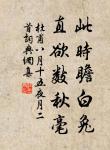 此時瞻白兔
直欲數秋毫
杜甫八月十五夜月二
首詞典網集